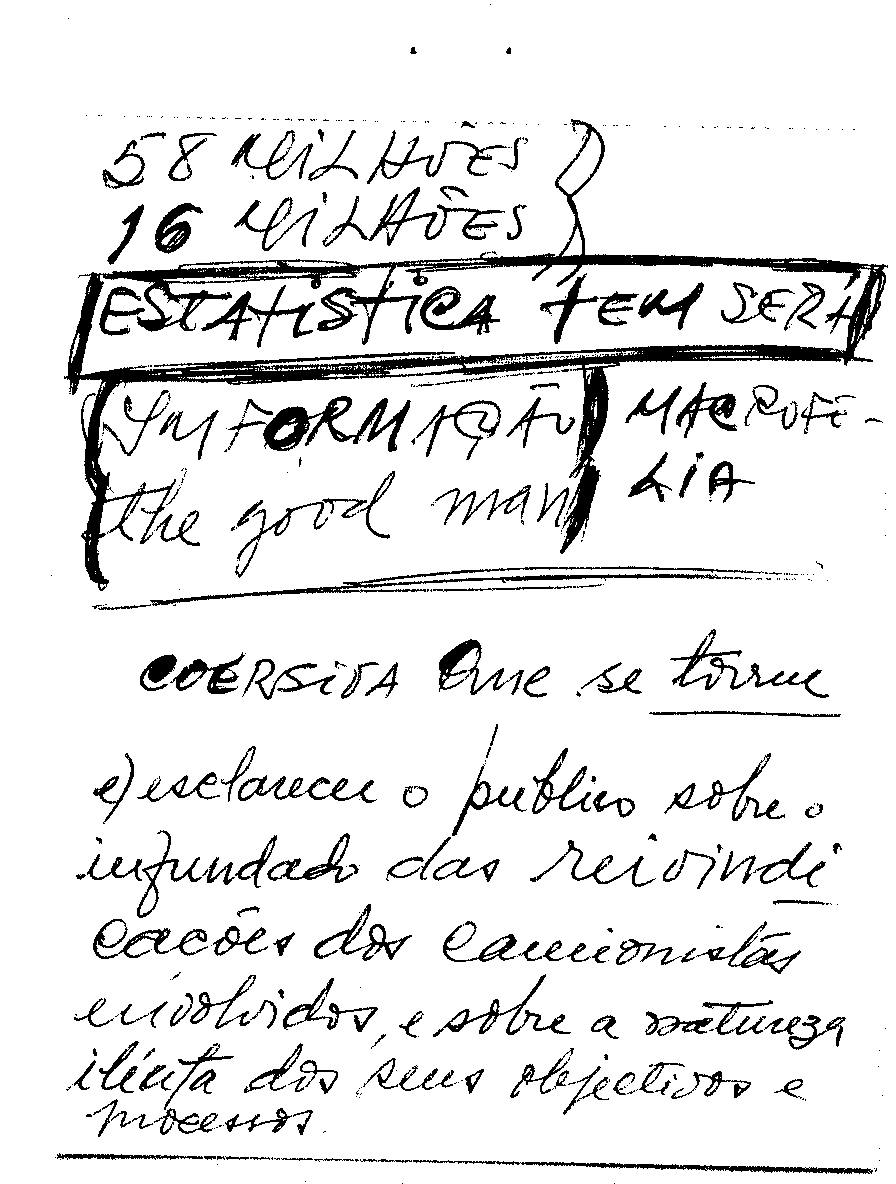 58 MILHÕES
16 MILHÕES
ESTATÍSTICA TEM SERÁ
INFORMAÇÃO MACROFE-
the good man LIA
COERSIVA Que se torne
e) esclarecer o publico sobre o
infundado das reivindi
cacões dos camionistas
envolvidos, e sobre a natureza
ilicita dos seus objectivos e
processos.